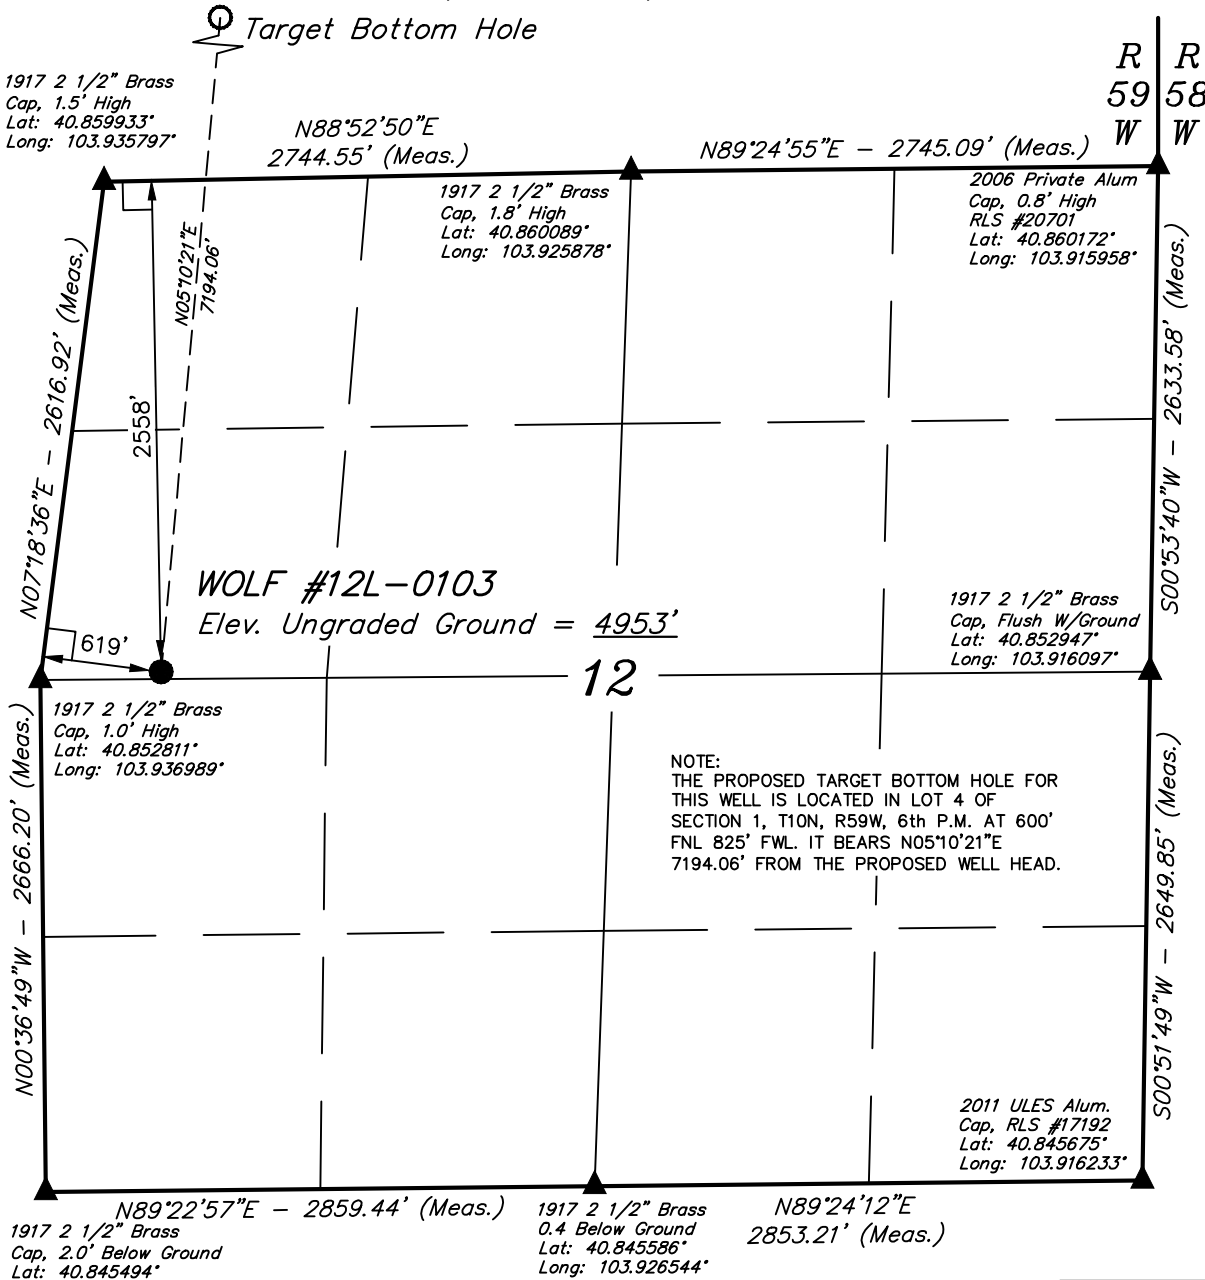 Target Bottom Hole
R R
59 58
W W
1917 2 1/2" Brass
Cap, 1.5' High
Lat: 40.859933°
Long: 103.935797°
N88°52'50"E
2744.55' (Meas.)
N89°24'55"E - 2745.09' (Meas.)
1917 2 1/2" Brass
Cap, 1.8' High
Lat: 40.860089°
Long: 103.925878°
2006 Private Alum
Cap, 0.8' High
RLS #20701
Lat: 40.860172°
Long: 103.915958°
N05°10'21"E
7194.06'
N07°18'36"E - 2616.92' (Meas.)
2558'
S00°53'40"W - 2633.58' (Meas.)
WOLF #12L-0103
Elev. Ungraded Ground = 4953'
619'
12
1917 2 1/2" Brass
Cap, Flush W/Ground
Lat: 40.852947°
Long: 103.916097°
1917 2 1/2" Brass
Cap, 1.0' High
Lat: 40.852811°
Long: 103.936989°
NOTE:
THE PROPOSED TARGET BOTTOM HOLE FOR
THIS WELL IS LOCATED IN LOT 4 OF
SECTION 1, T10N, R59W, 6th P.M. AT 600'
FNL 825' FWL. IT BEARS N05°10'21"E
7194.06' FROM THE PROPOSED WELL HEAD.
N00°36'49"W - 2666.20' (Meas.)
S00°51'49"W - 2649.85' (Meas.)
2011 ULES Alum.
Cap, RLS #17192
Lat: 40.845675°
Long: 103.916233°
N89°22'57"E - 2859.44' (Meas.)
N89°24'12"E
2853.21' (Meas.)
1917 2 1/2" Brass
Cap, 2.0' Below Ground
Lat: 40.845494°
1917 2 1/2" Brass
0.4 Below Ground
Lat: 40.845586°
Long: 103.926544°